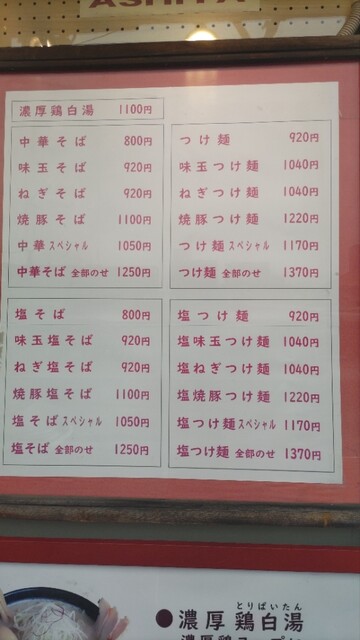 濃厚鶏白湯 1100円
中華そば 800円
味玉そば 920円
ねぎそば 920円
焼豚そば 1100円
中華スペシャル 1050円
中華そば 全部のせ 1250円
つけ麺 920円
味玉つけ麺 1040円
ねぎつけ麺 1040円
焼豚つけ麺 1220円
つけ麺スペシャル 1170円
つけ麺 全部のせ 1370円
塩そば 800円
味玉塩そば 920円
ねぎ塩そば 920円
焼豚塩そば 1100円
塩そばスペシャル 1050円
塩そば 全部のせ 1250円
塩つけ麺 920円
塩味玉つけ麺 1040円
塩ねぎつけ麺 1040円
塩焼豚つけ麺 1220円
塩つけ麺スペシャル 1170円
塩つけ麺 全部のせ 1370円
とりぱいたん
●濃厚 鶏白湯